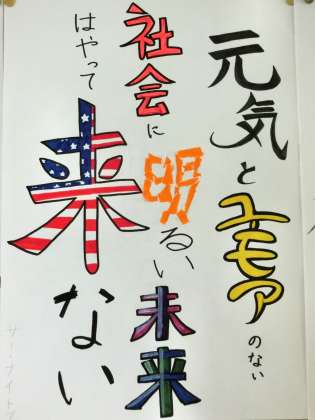 元気とユーモアのない
社会に明るい未来
はやって来ない
サー・ナイトアイ